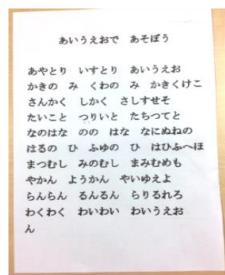 あいうえおで あそぼう
あやとり いすとり あいうえお
かきの み くわの み かきくけこ
さんかく しかく さしすせそ
たいこと つりいと たちつてと
なのはな のの はな なにぬねの
はるの ひ ふゆの ひ はひふへほ
まつむし みのむし まみむめも
やかん ようかん やいゆえよ
らんらん るんるん らりるれろ
わくわく わいわい わいうえお
ん